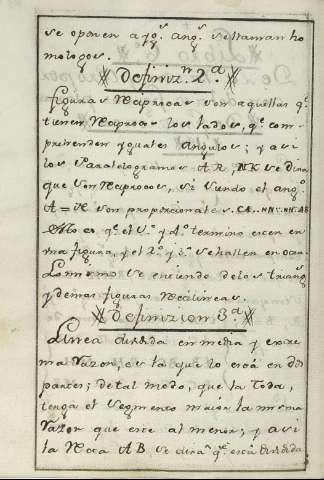 se oponen a yg.s ang.s se llaman ho
mologos.
Definiz.n 2.a
figuras Reciprocas son aquellas q.e
tienen Reciprocos los lados, q.e com-
prehenden yguales angulos; y asi
los Paralelogramos AR, NK se dira
que son Reciprocos, si siendo el ang.o
A = N son proporcionales
Esto es q.e el 1.o y 4.o termino esten en
vna figura, y el 2.o y 3.o se hallen en otra
Lo mismo se entiende de los triang.s
y demas figuras Rectilineas.
Definizion 3.a
Linea dividida en media y extre
ma Razon, es la que lo está en dos
partes; de tal modo, que la toda,
tenga el segmento maior la misma
Razon que este al menor; y asi
la Recta AB se dira q.e está dividida